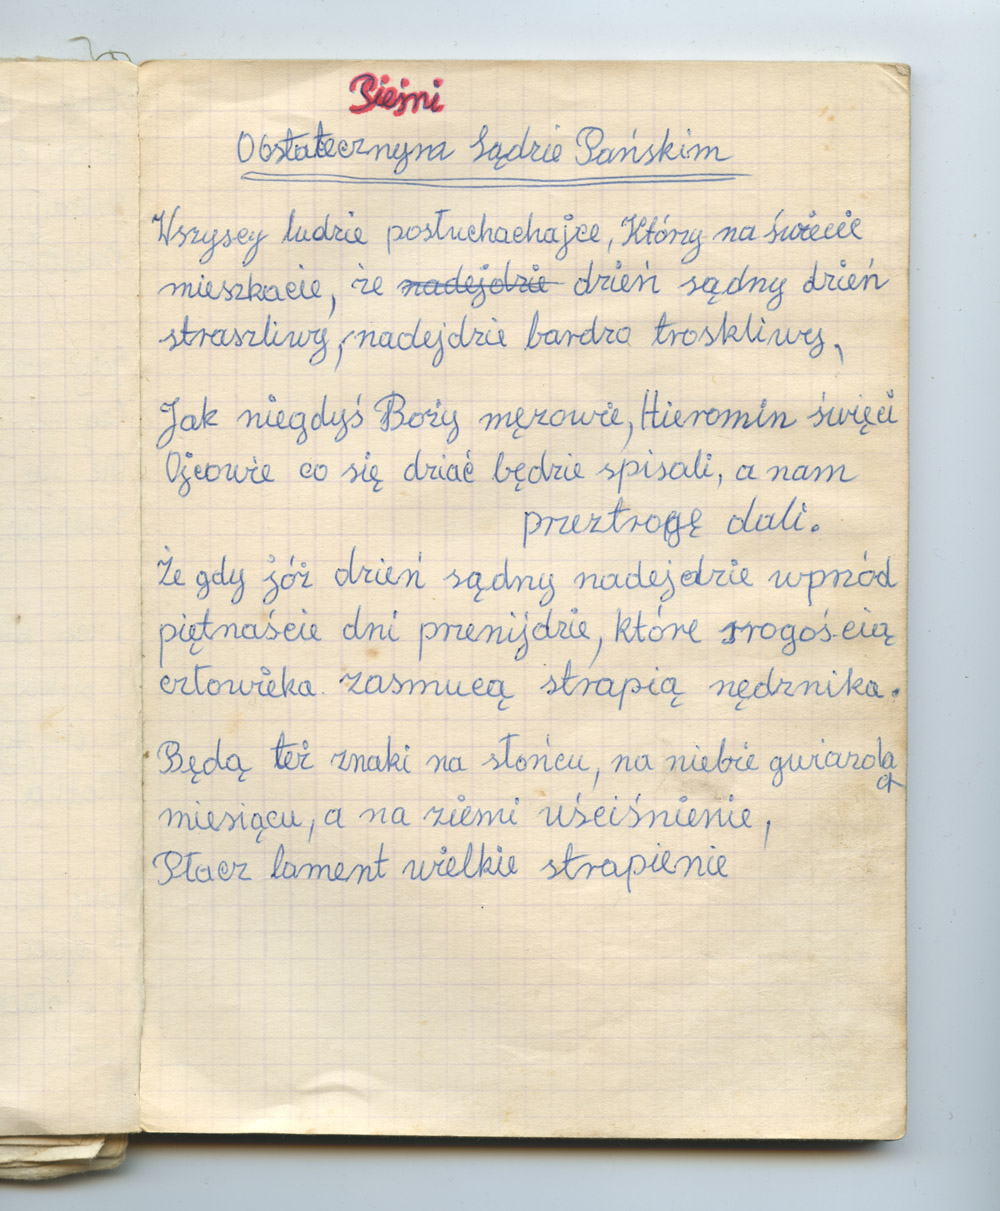 Pieśni
Obstatecznym Sądzie Pańskim
Wszyscy ludzie posłuchachajce, Którzy na świecie
mieszkacie, że nadejdzie dzień sądny dzień
straszliwy, nadejdzie bardzo troskliwy,
Jak niegdyś Boży mężowie, Hieromin święci
Ojcowie co się dziać będzie spisali, a nam
przeztrogę dali.
Że gdy jóż dzień sądny nadejdzie wprzód
piętnaście dni przenijdzie, które srogością
człowieka zasmucą strapią nędznika.
Będą też znaki na słońcu, na niebie gwiazda
a
miesiącu, a na ziemi uściśnienie,
Płacz lament wielkie strapienie